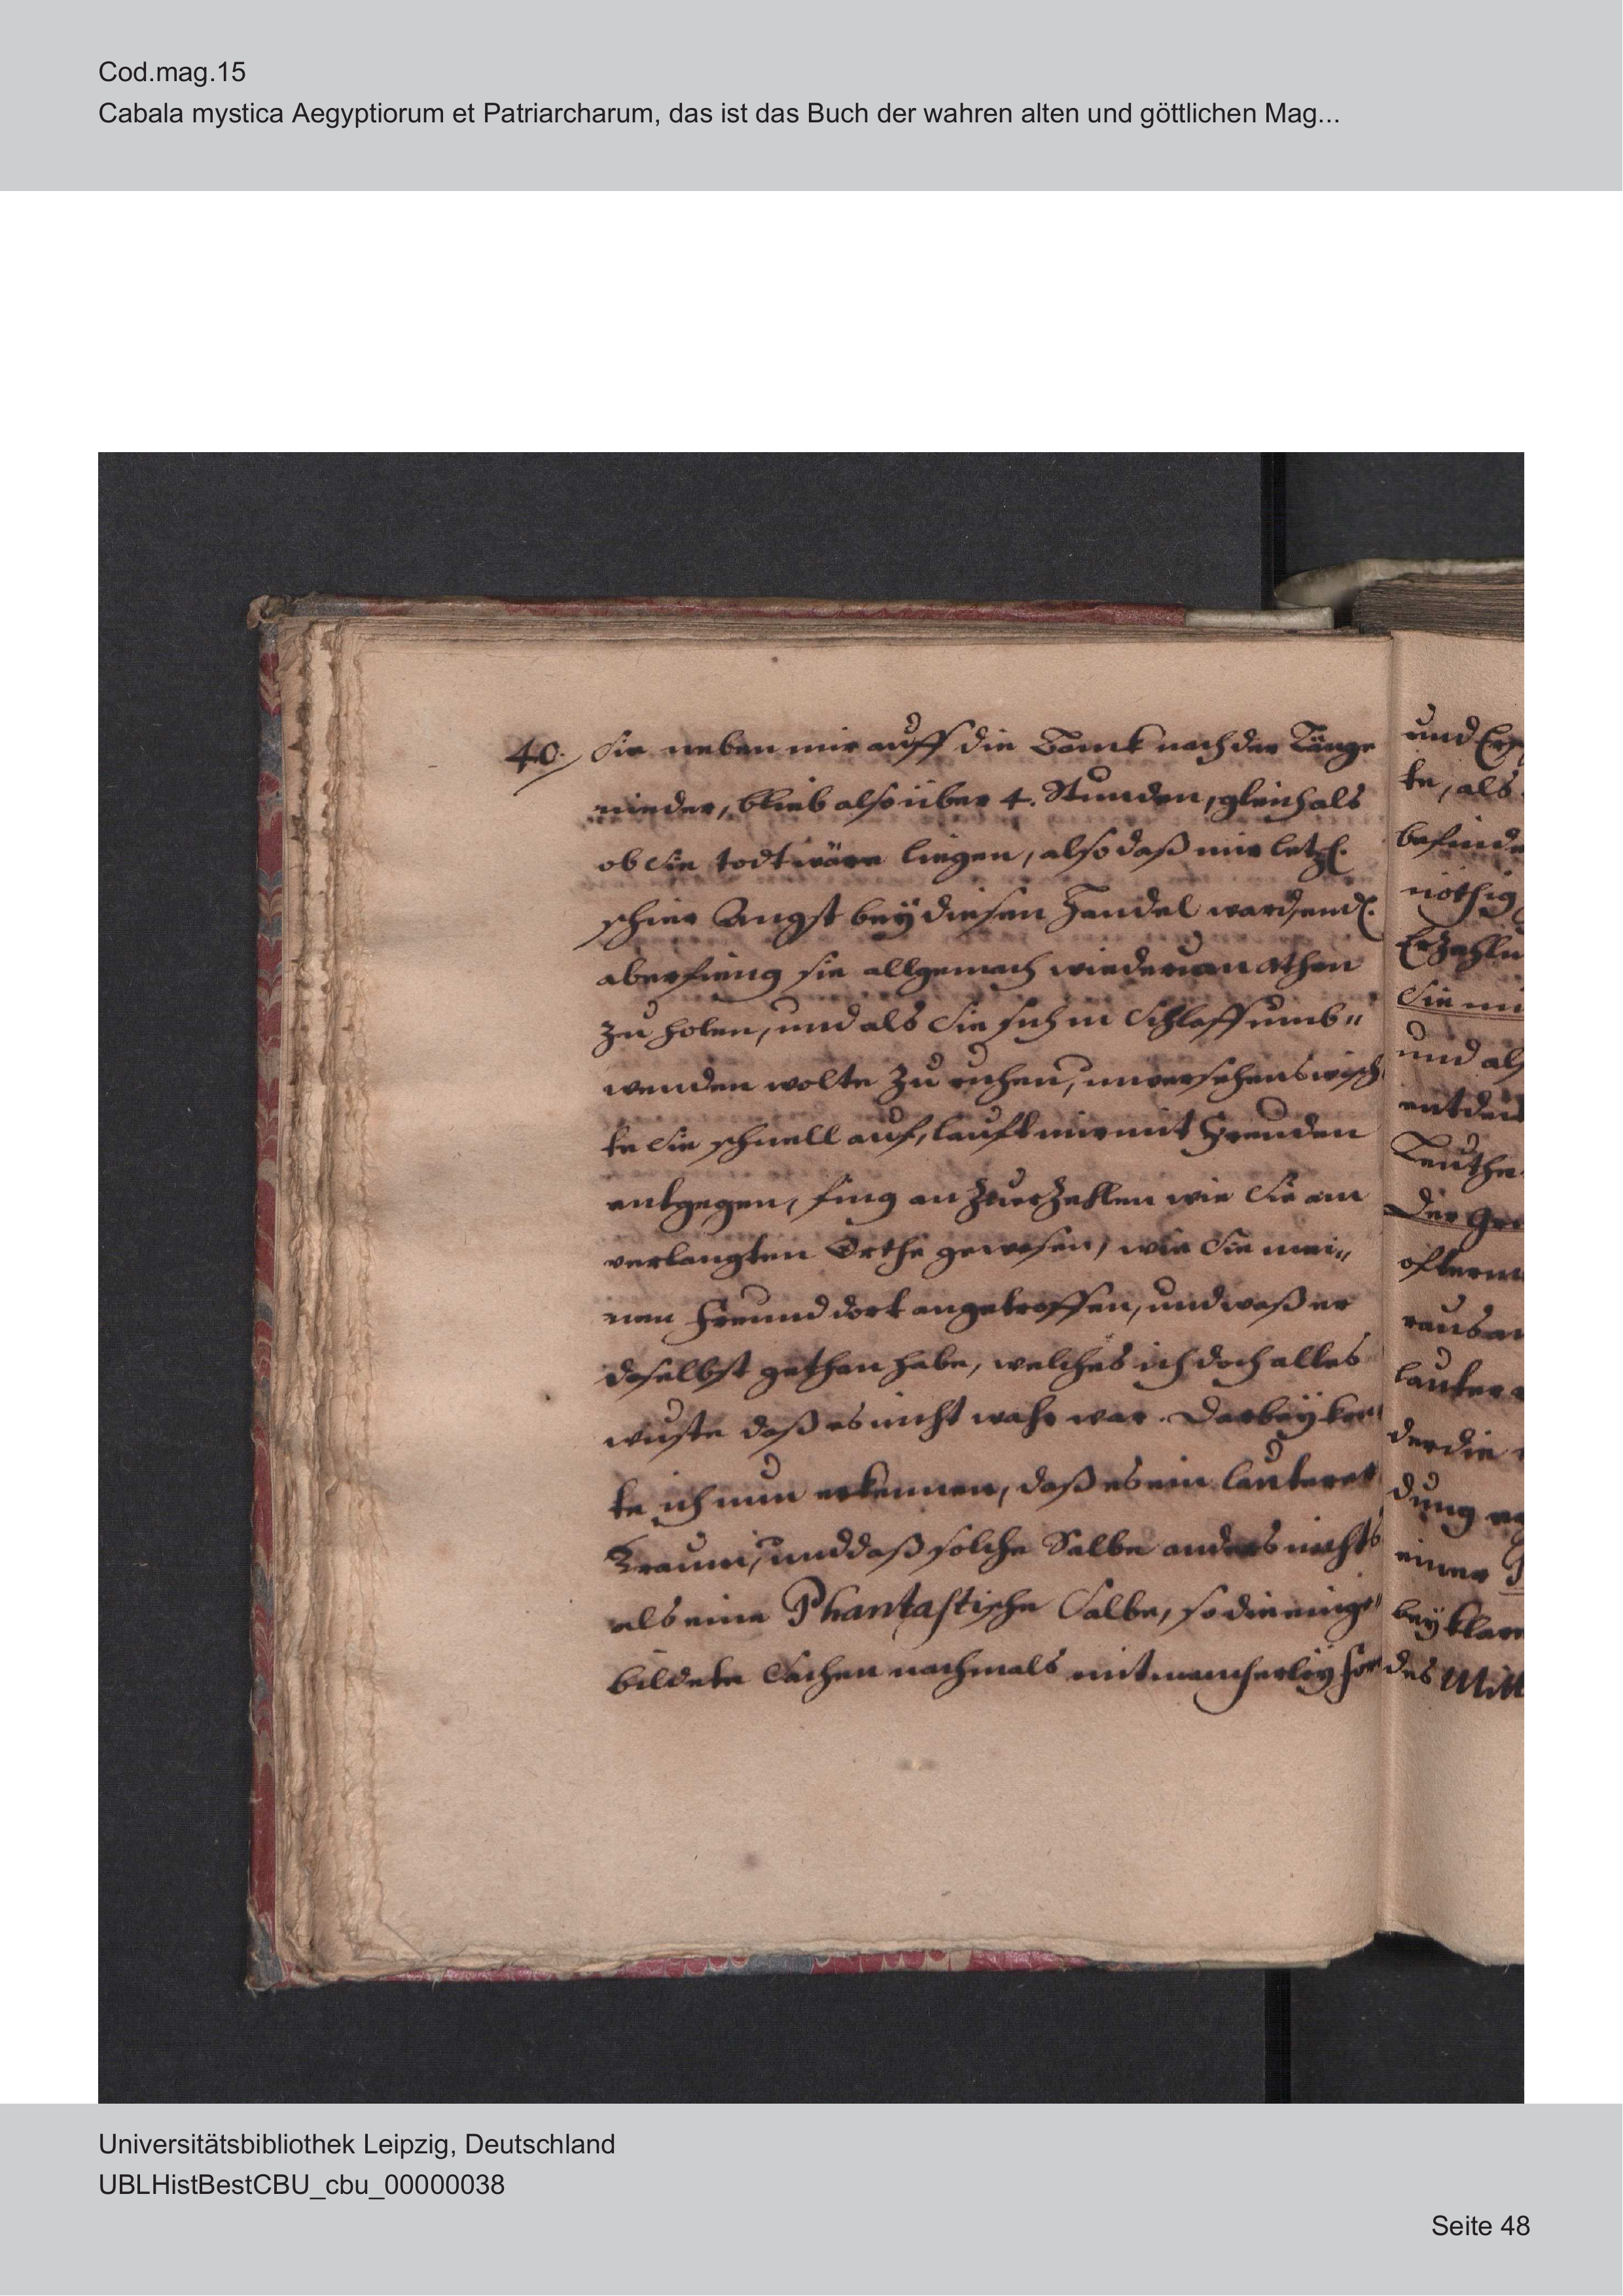 Cod.mag.15
Cabala mystica Aegyptiorum et Patriarcharum, das ist das Buch der wahren alten und göttlichen Mag...
40. Sie neben mir auff die Banck nach der Länge
nieder, blieb also über 4. Stunden, gleich als
ob Sie todt wäre liegen, also daß mir letzl.
schier Angst bey diesen Handel ward, endl.
aber fieng sie allgemach wiederum an Athen
zu holen, und als Sie sich in Schlaff umb„
wenden wolte zu ruhen, unversehens wisch
te Sie schnell auf, lauft mir mit Freuden
entgegen, fing an zu erzehlen wie Sie am
verlangten Orthe gewesen, wie Sie mei„
nen Freund dort angetroffen, und waß er
daselbst gethan habe, welches ich doch alles
wuste daß es nicht wahr war. Darbey kon
te ich nun erkennen, daß es ein lauterer
Traum, und daß solche Salbe anders nichts
als eine Phantastische Salbe, so die einge„
bildete Sachen nachmals mit mancherley
und
te, als
befinde
nöthig
Erzehlu
Sie mi
und als
entdeck
Leuthe
Der
ofterm
raus an
lauter
der die
dung
einer
bey klare
des Mitt
Universitätsbibliothek Leipzig, Deutschland
UBLHistBestCBU_cbu_00000038
Seite 48